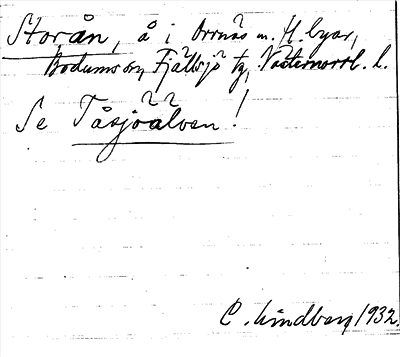 Storån, å i Orrnäs m. fl. byar,
Bodums o. Fjällsjö tg, Västernorrl. l.
Se Tåsjöälven!
C. Lindberg 1932.